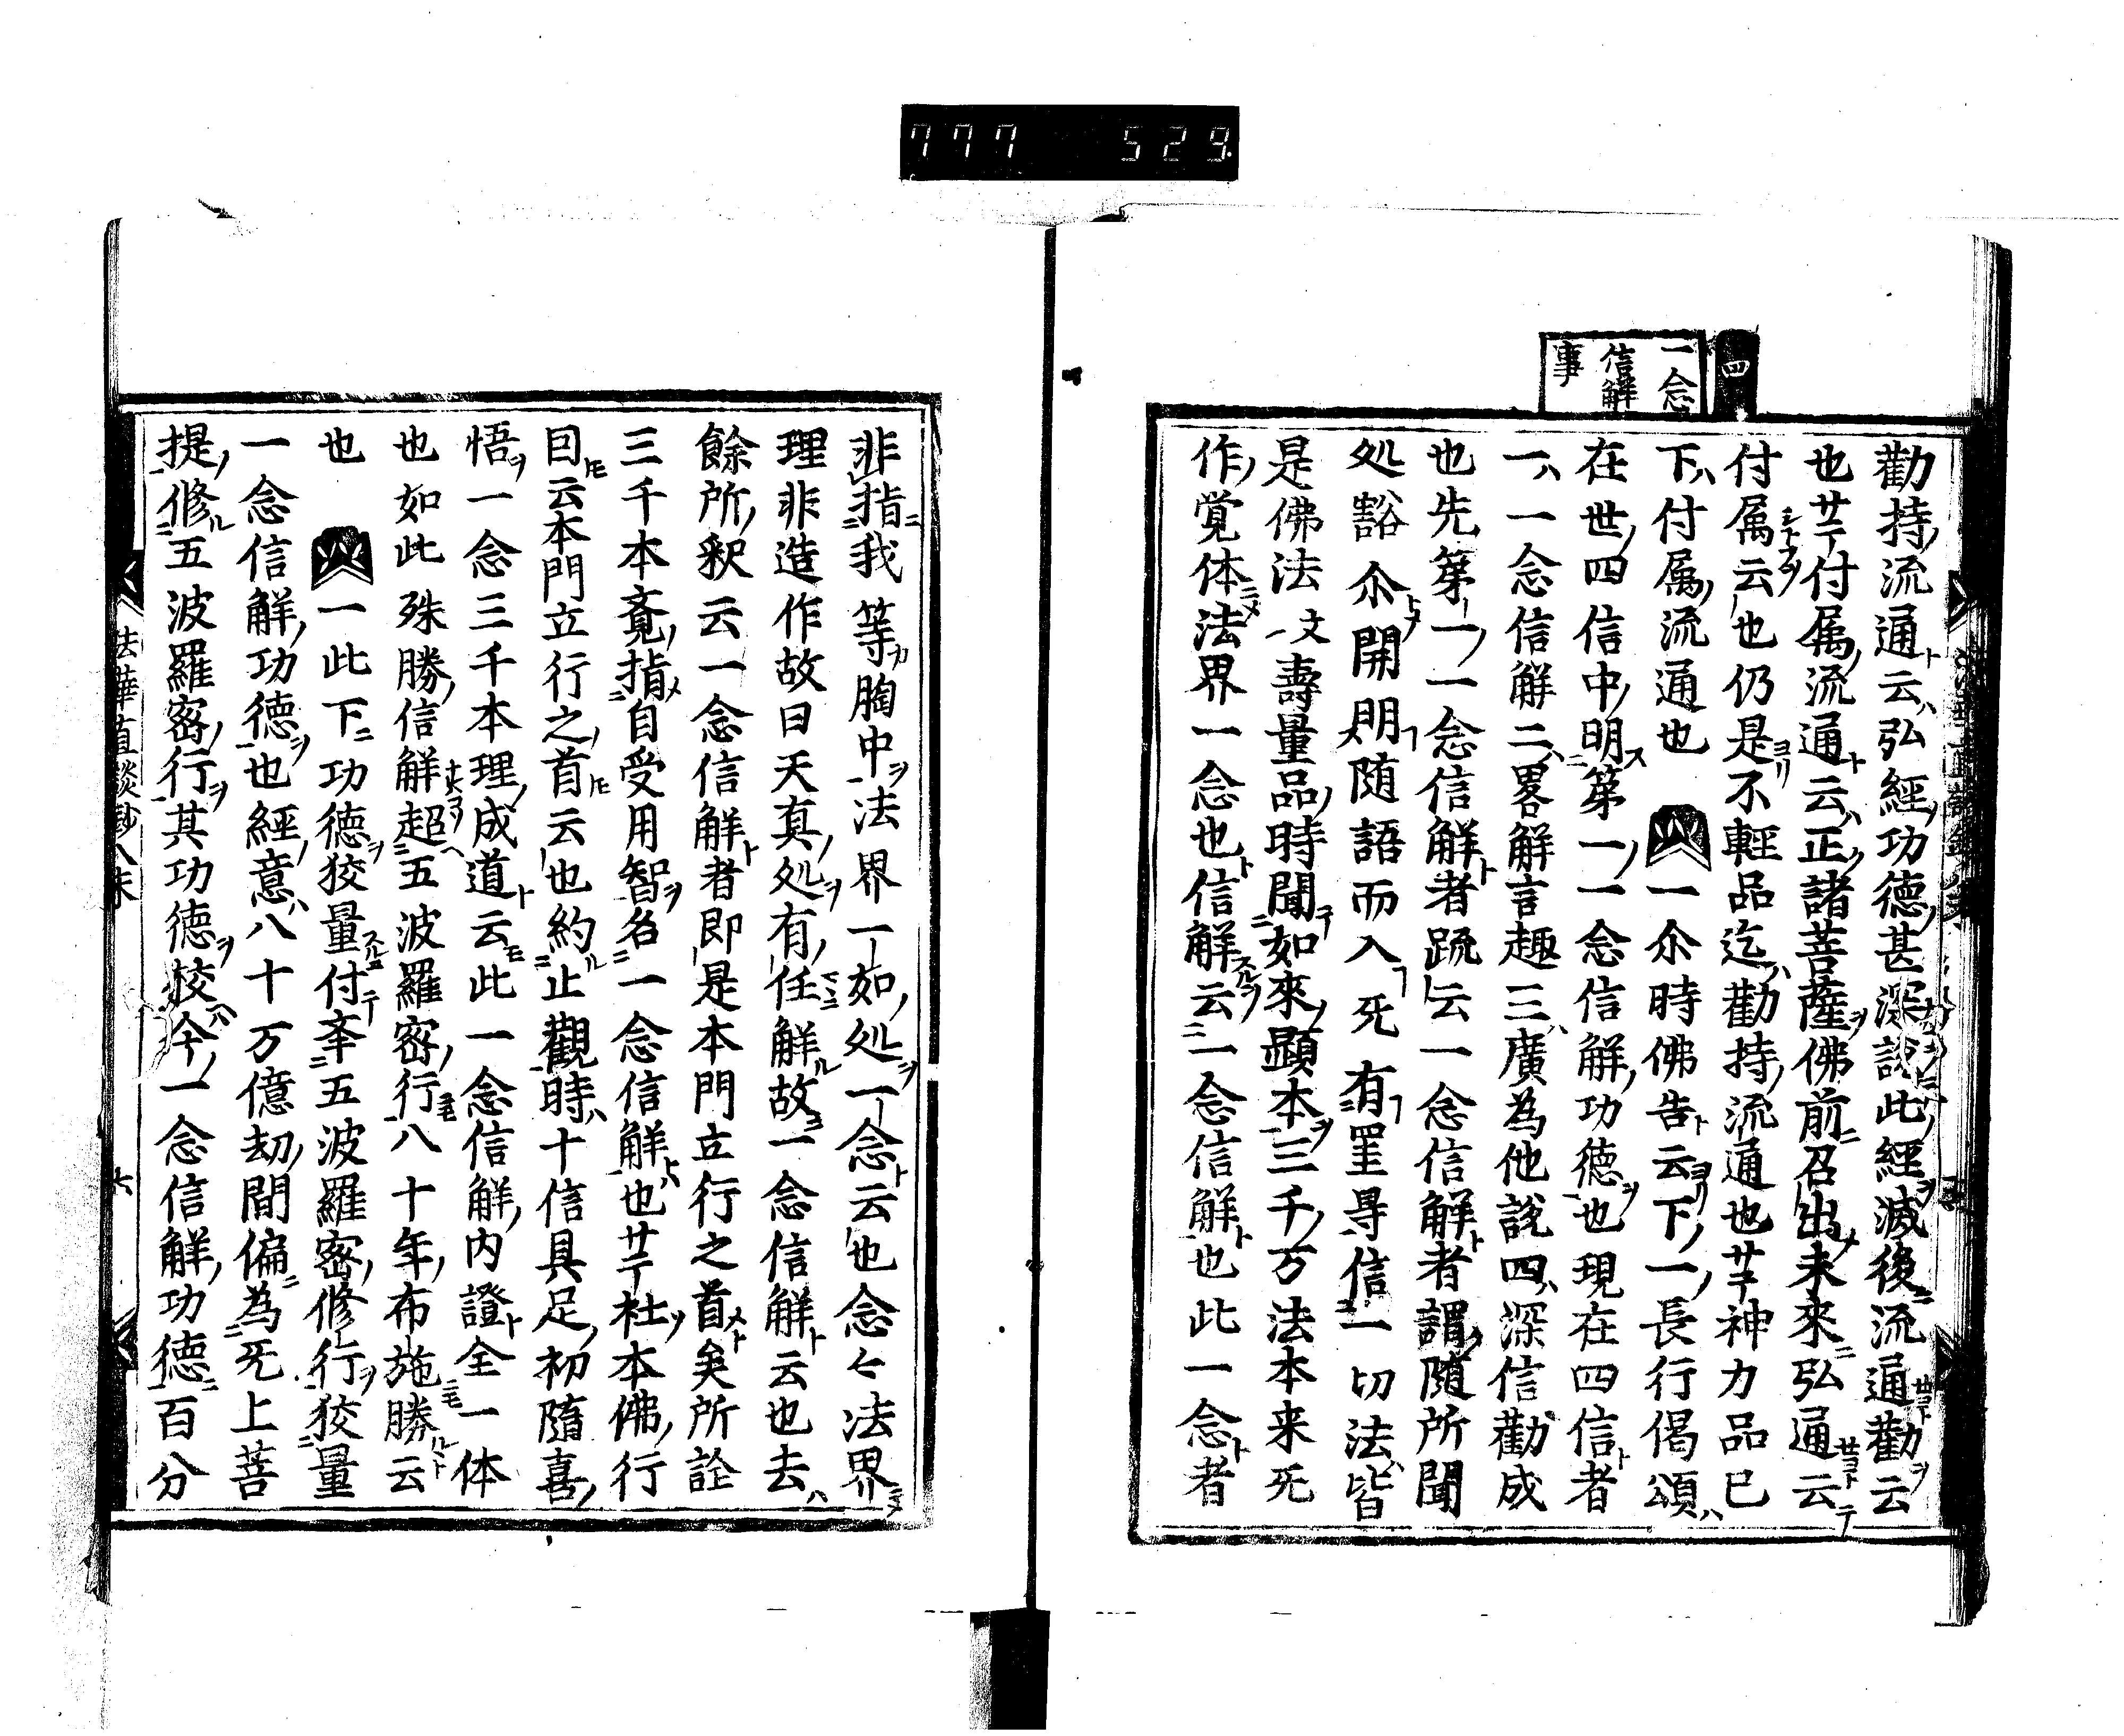 777 529
四
一念
信解
事
勸持流通云弘經功德甚深說此經滅後流通勸云
也サテ付属流通云正諸菩薩佛前召出未来弘通云
付属云也仍是不輕品迄勸持流通也サテ神力品已
下付属流通也 一尒時佛告云下一長行偈頌
在世四信中明第一一念信解功德也現在四信者
一一念信解二畧解言趣三廣為他說四深信勸成
也先第一一念信解者䟽云一念信解者謂随所聞
処豁尒開明随語而入旡有罣导信一切法皆
是佛法文壽量品時聞如來顕本三千万法本来旡
作覚体法界一念也信解云一念信解也此一念者
非指我等胸中法界一如処一念云也念々法界
理非造作故曰天真処有任解故一念信解云也去
餘所釈云一念信解者即是本門立行之首矣所詮
三千本有指自受用智名一念信解也サテ社本佛行
因云本門立行之首云也約止觀時十信具足初隨喜
悟一念三千本理成道云此一念信解内證全一体
也如此殊勝信解超五波羅密行八十年布施勝云
也 一此下功德挍量付本五波羅密修行挍量
一念信解功德也經意八十万億劫間偏為旡上菩
提修五波羅密行其功德挍今一念信解功德百分
法華直談鈔八末 六